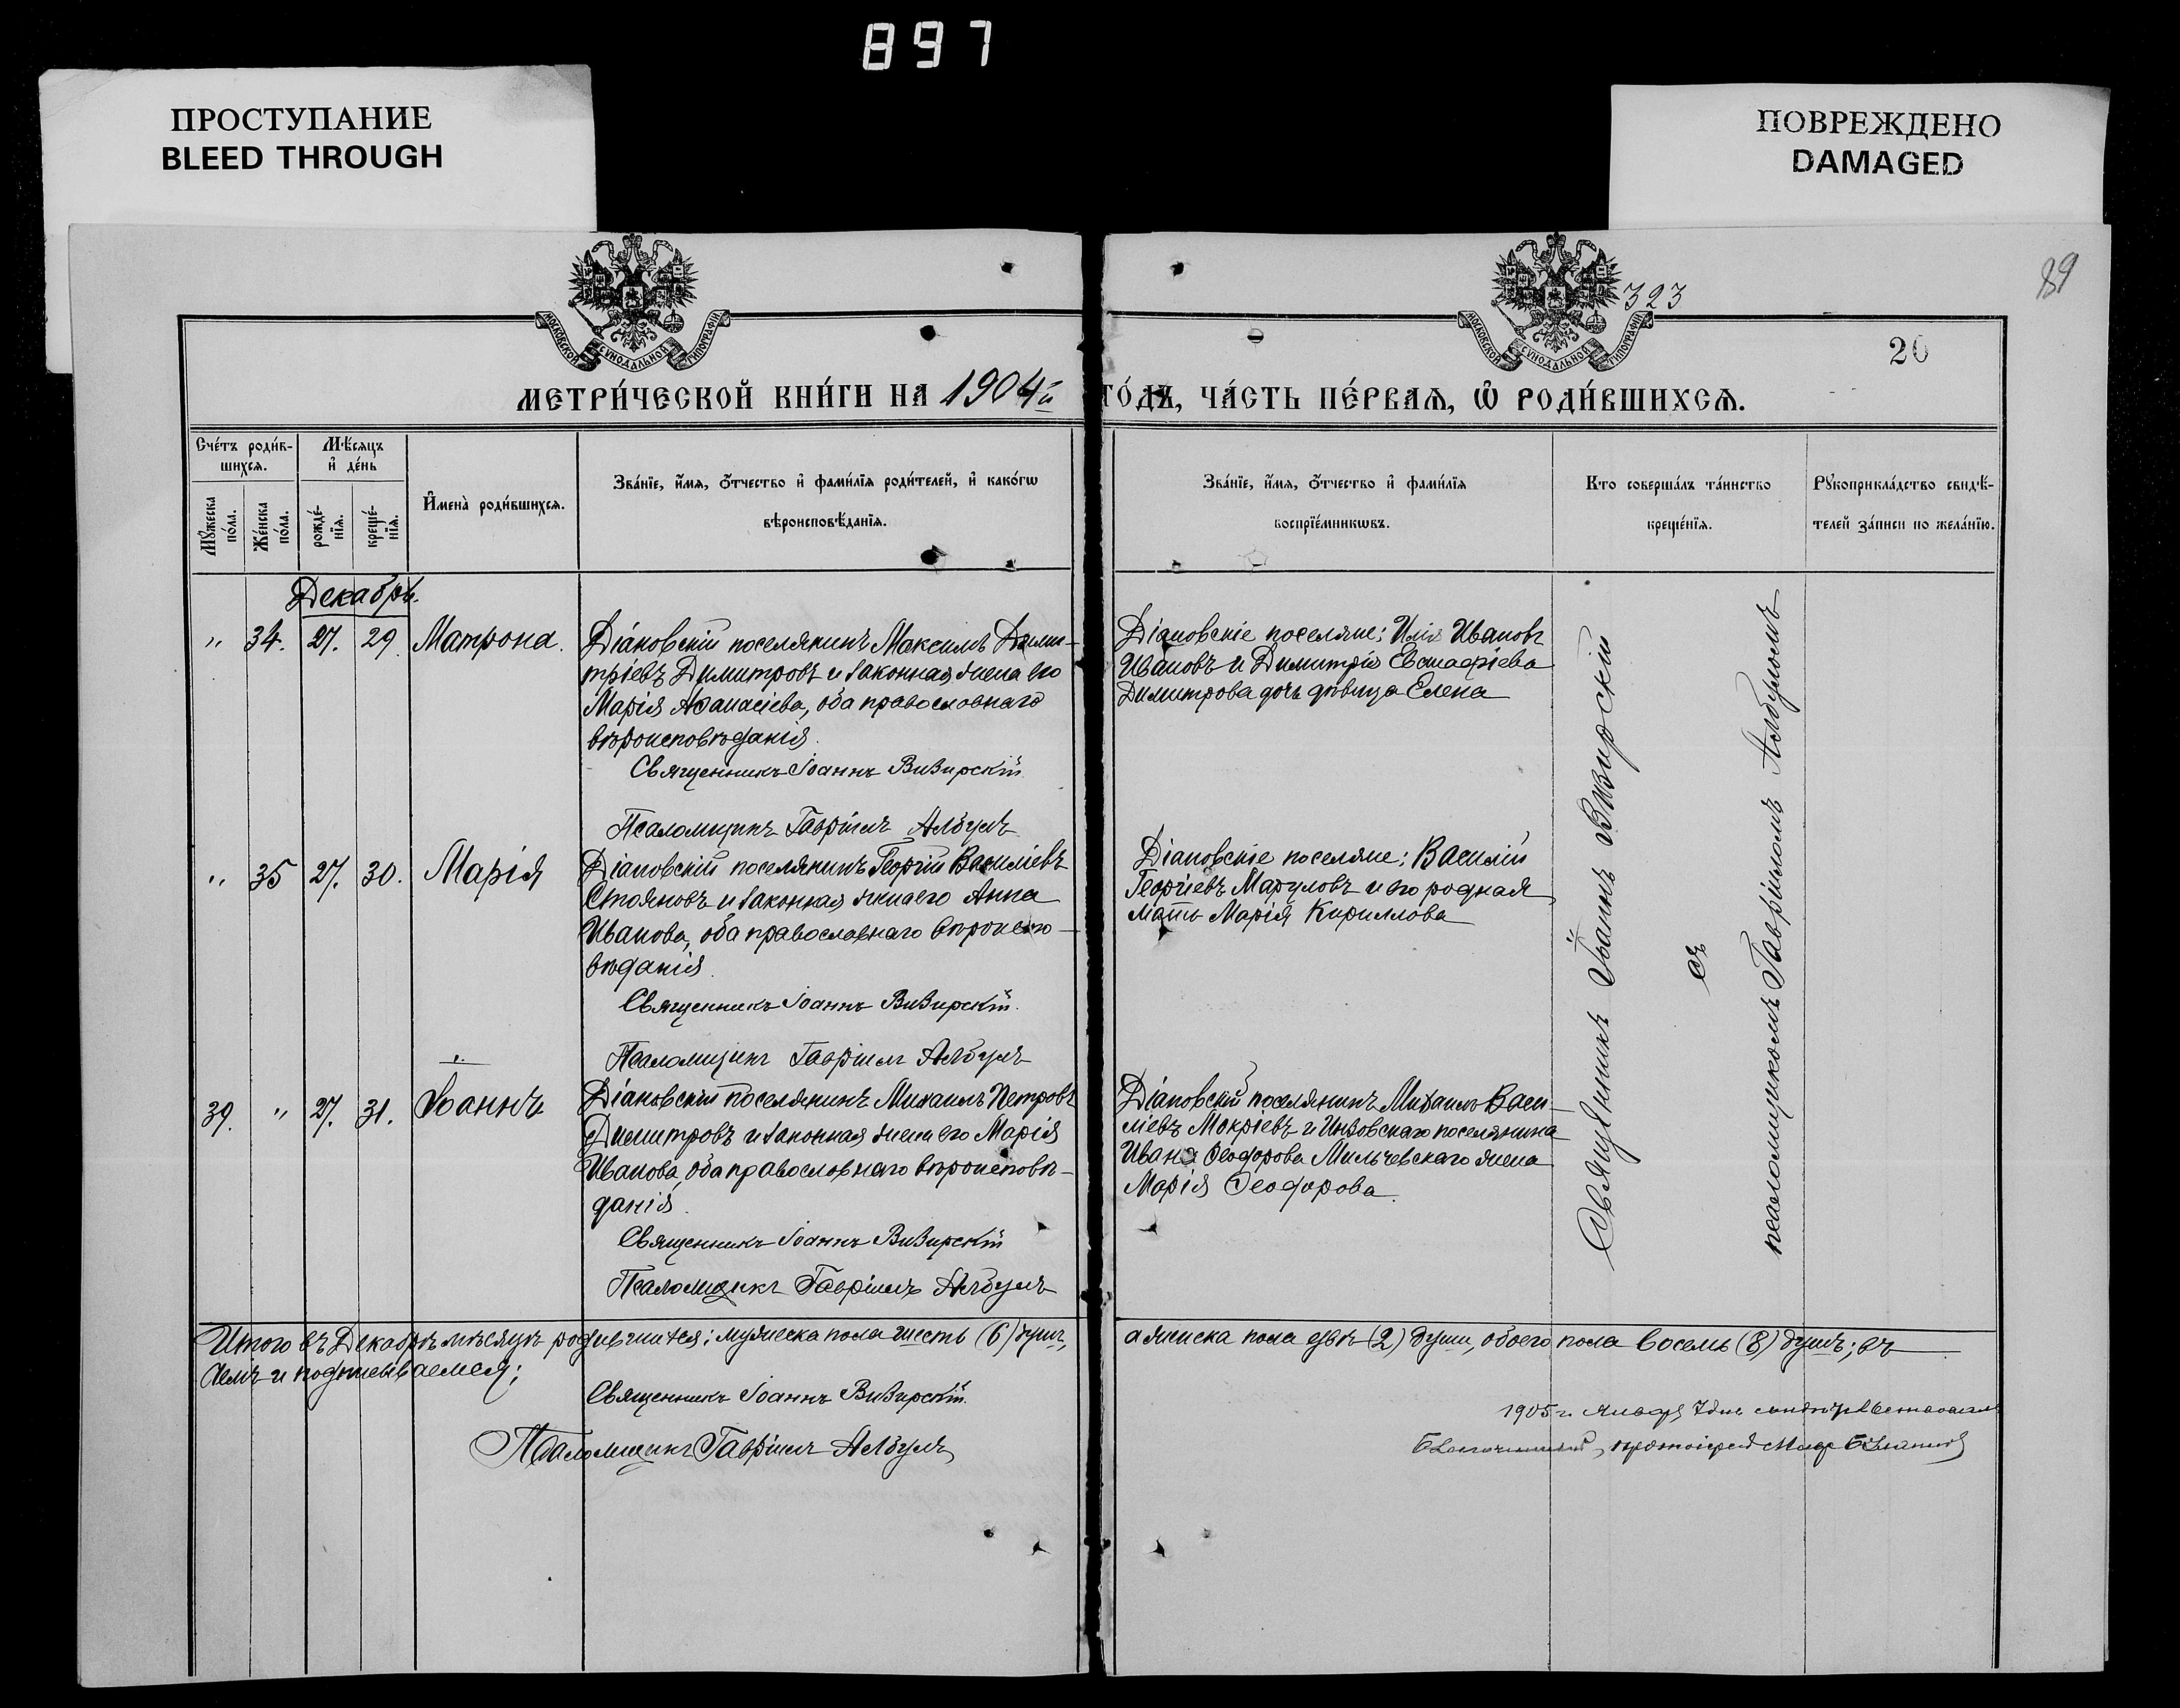 897
ПРОСТУПАНИЕ
BLEED THROUGH
ПОВРЕЖДЕНО
DAMAGED
89
323
20
МОСКОВСКОЙ СѴНОДАЛЬНОЙ ТИПОГРАФІИ
МОСКОВСКОЙ СѴНОДАЛЬНОЙ ТИПОГРАФІИ
МЕТРИ́ЧЕСКОЙ КНИ́ГИ НА 1904й ГО́ДЪ, ЧА́СТЬ ПЕ́РВАѦ, Ѡ҆ РОДИ́ВШИХСѦ.
Сче́тъ роди́в-
шихсѧ.
Мѣ́сѧцъ
и҆ де́нь
Мꙋ́жеска
по́ла.
Же́нска
по́ла.
рожде́-
нїѧ.
креще́-
нїѧ.
И҆мена̀ роди́вшихсѧ.
Зва́нїе, и҆́мѧ, ѻ҆́тчество и҆ фами́лїѧ роди́телей, и҆ како́гѡ
вѣроисповѣ́данїѧ.
Зва́нїе, и҆́мѧ, ѻ҆́тчество и҆ фами́лїѧ
воспрїе́мникѡвъ.
Кто соверша́лъ та́инство
креще́нїѧ.
Рꙋкоприкла́дство свидѣ́-
телей за́писи по жела́нїю.
Декабрь.
" 34. 27. 29. Матрона.
Діановскій поселянинъ Максимъ Дими-
тріевъ Димитровъ и законная жена его
Марія Аѳанасіева, оба православнаго
вѣроисповѣданія.
Священникъ Іоаннъ Визирскій
Псаломщикъ Гавріилъ Албулъ
Діановскіе поселяне: Илія Ивановъ
Ивановъ и Димитрія Евстафіева
Димитрова дочь дѣвица Елена
" 35 27. 30. Марія
Діановскій поселянинъ Георгій Василіевъ
Стояновъ и законная жена его Анна
Иванова, оба православнаго вѣроиспо-
вѣданія.
Священникъ Іоаннъ Визирскій.
Псаломщикъ Гавріилъ Албулъ
Діановскіе поселяне: Василій
Георгіевъ Маруловъ и его родная
мать Марія Кириллова
39. " 27. 31. Іоаннъ
Діановскій поселянинъ Михаилъ Петровъ
Димитровъ и законная жена его Марія
Иванова, оба православнаго вѣроисповѣ-
данія.
Священникъ Іоаннъ Визирскій
Псаломщикъ Гавріилъ Албулъ
Діановскій поселянинъ Михаилъ Васи-
ліевъ Мокріевъ и Инзовскаго поселянина
Ивана Ѳеодорова Мильчевскаго жена
Марія Ѳеодорова.
Священникъ Іоаннъ Визирскій
съ
псаломщикомъ Гавріиломъ Албуломъ
Итого въ Декабрѣ мѣсяцѣ родившихся: мужеска пола шесть (6) душъ, а женска пола двѣ (2) души, обоего пола восемь (8) душъ; въ
чемъ и подписываемся;
Священникъ Іоаннъ Визирскій.
Псаломщикъ Гавріилъ Албулъ
1905 г. Января 7 дня
Благочинный, протоіерей